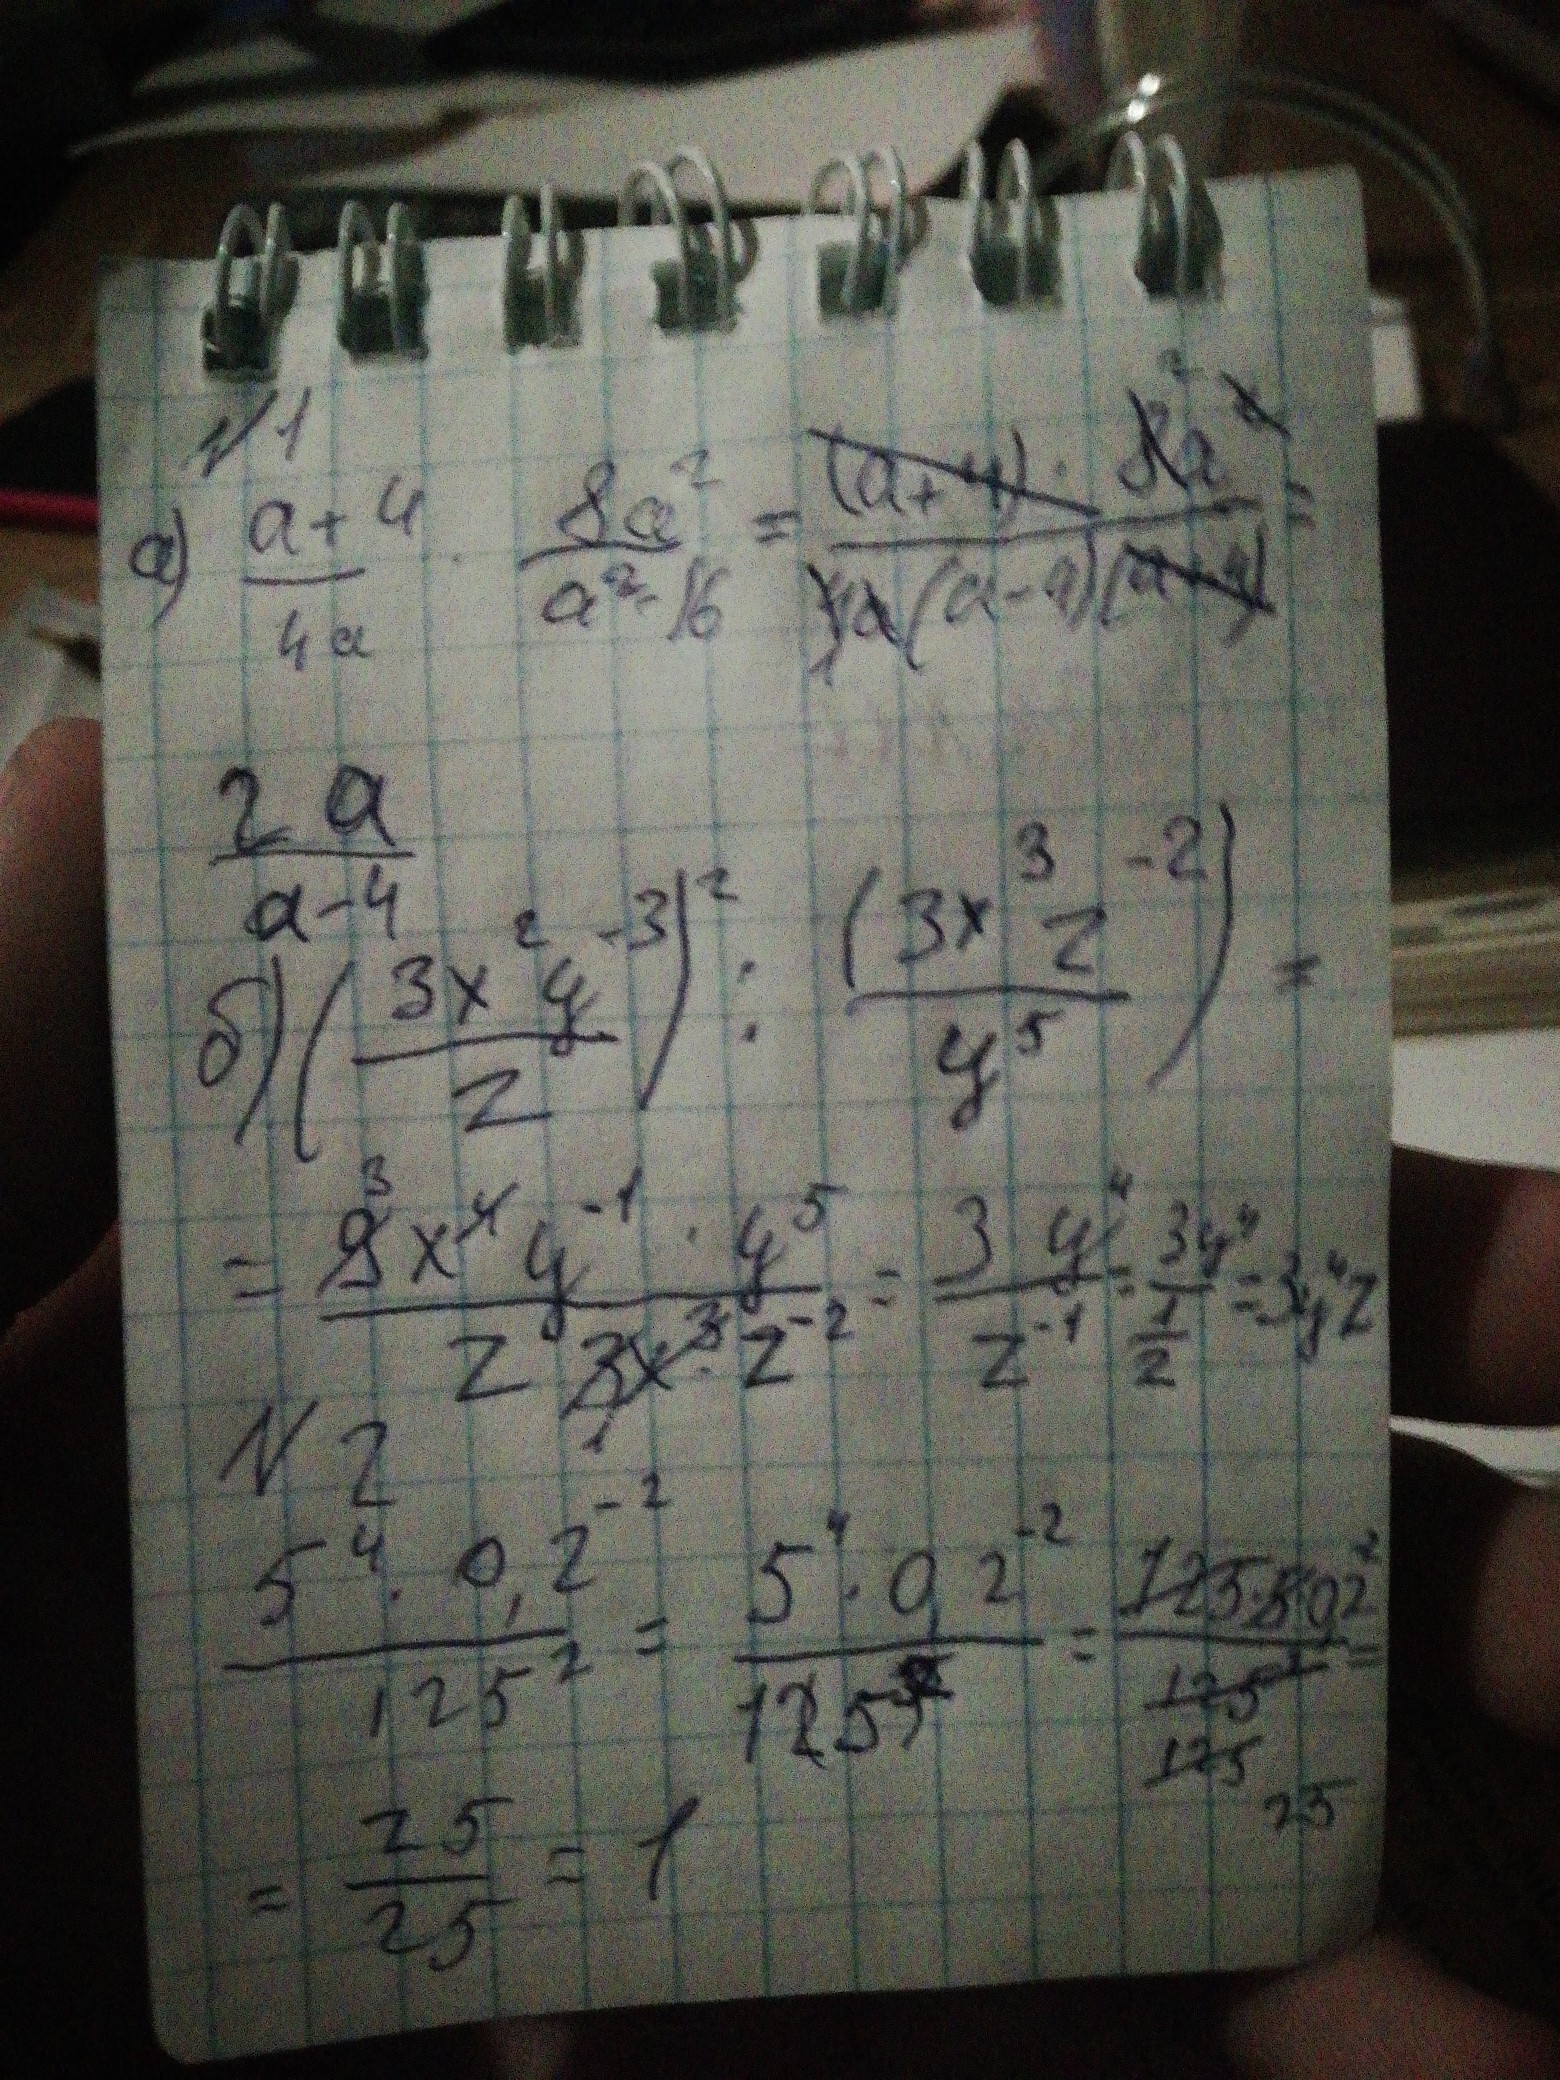 №1
а) (a+4)/(4a) · (8a²)/(a²-16) = ((a+4) · 8a²)/(4a(a-4)(a+4)) =
(2a)/(a-4)
б) ((3x²y⁻³)/z)² : ((3x³z⁻²)/y⁵) =
= (9x⁴y⁻¹ · y⁵)/(z 3x³ · z⁻²) = (3y⁴)/(z⁻¹) = (3y⁴)/(1/z) = 3y⁴z
№2
(5⁴ · 0,2⁻²)/(125²) = (5⁴ · 0,2⁻²)/(125²) = (125·5·0,2²)/(125²) =
125
25
= 25/25 = 1